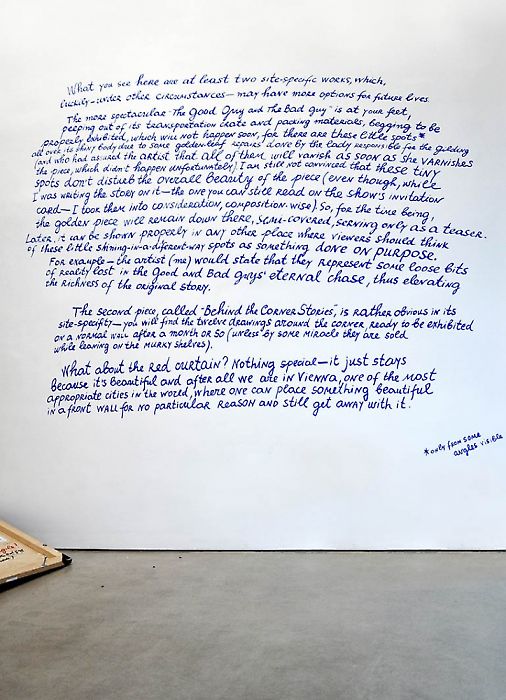 What you see here are at least two site-specific works, which,
luckily–under other circumstances– may have more options for future lives.
The more spectacular "The Good Guy and The Bad guy" is at your feet,
peeping out of its transportation crate and packing materials, begging to be
properly exhibited, which will not happen soon, for there are these little spots*
all over its shiny body due to some golden-leaf repairs done by the lady responsible for the gilding
and who had assured the artist that all of them will vanish as soon as she varnishes
the piece, which didn't happen unfortunately). I am still not convinced that these tiny
spots don't disturb the overall beauty of the piece (even though, while
I was writing the story on it–the one you can still read on the show's invitation
card–I took them into consideration, composition-wise). So, for the time being,
the golden piece will remain down there, semi-covered, serving only as a teaser.
Later, it can be shown properly in any other place where viewers should think
of these little shining-in-a-different-way spots as something done on purpose.
For example – the artist (me) would state that they represent some loose bits
of reality lost in the Good and Bad guys' eternal chase, thus elevating
the richness of the original story.
The second piece, called "Behind the Corner Stories", is rather obvious in its
site-specifity–you will find the twelve drawings around the corner, ready to be exhibited
on a normal wall after a month or so (unless by some miracle they are sold
while leaning on the murky shelves).
What about the red curtain? Nothing special–it just stays
because it's beautiful and after all we are in Vienna, one of the most
appropriate cities in the world, where one can place something beautiful
in a front wall for no particular reason and still get away with it.
*only from some
angles visible